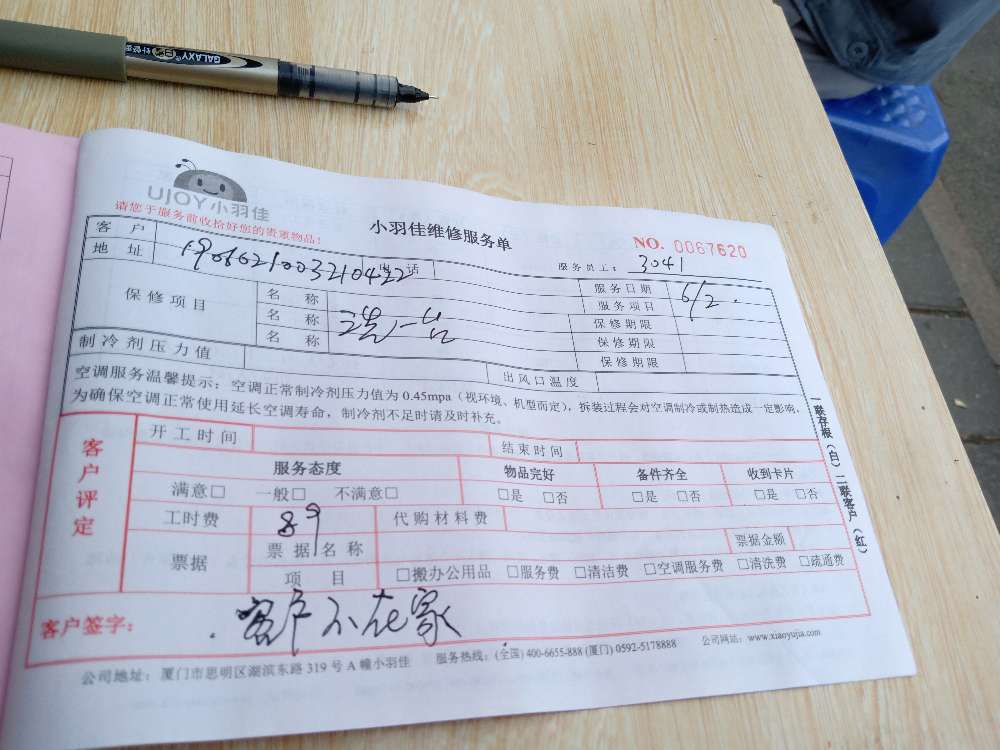 GALAXY
UJOY小羽佳
请您于服务前收拾好您的贵重物品!
小羽佳维修服务单
NO. 0067620
服务员工: 3041
客户
地址 电话
服务日期 6/2.
服务项目
保修项目 名称
名称
名称
保修期限
保修期限
保修期限
制冷剂压力值
出风口温度
空调服务温馨提示: 空调正常制冷剂压力值为 0.45mpa (视环境、机型而定), 拆装过程会对空调制冷或制热造成一定影响,
为确保空调正常使用延长空调寿命, 制冷剂不足时请及时补充。
客户评定
开工时间 结束时间
服务态度 物品完好 备件齐全 收到卡片
满意□ 一般□ 不满意□ □是 □否 □是 □否 □是 □否
工时费 89 代购材料费
票据 票据名称 票据金额
项目 □搬办公用品 □服务费 □清洁费 □空调服务费 □清洗费 □疏通费
客户签字: 客户不在家
一联存根(白) 二联客户(红)
公司地址: 厦门市思明区湖滨东路 319 号 A 幢小羽佳 服务热线: (全国) 400-6655-888 (厦门) 0592-5178888 公司网站: www.xiaoyujia.com